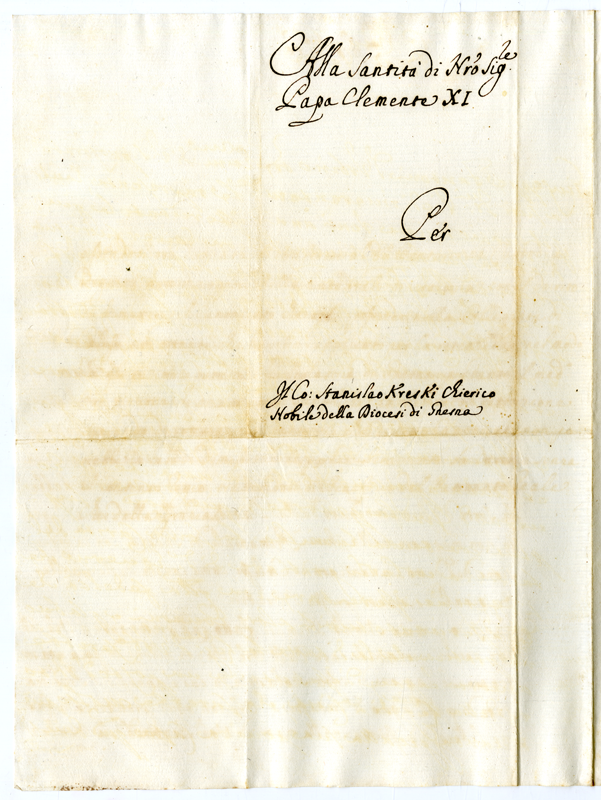 Alla Santità di Nr̃o Sig.re
Papa Clemente XI
Per
Il Co: Stanislao Kreski Chierico
Nobile della Diocesi di Gnesna